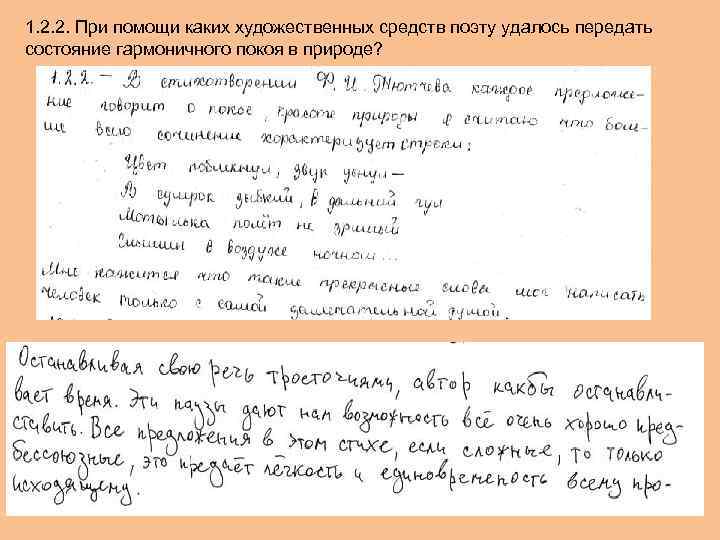 1. 2. 2. При помощи каких художественных средств поэту удалось передать
состояние гармоничного покоя в природе?
1.2.2. – В стихотворении Ф. И. Тютчева каждое предложе-
ние говорит о покое, красоте природы я считаю что боле-
ие всего сочинение характеризует строки:
Цвет поблекнул, звук уснул –
В сумрак зыбкий, в дальний гул
Мотылька полёт не зримый
Слышин в воздухе ночном...
Мне кажится что такие прекрасные словы мог написать
человек только с самой
душой.
Останавливая свою речь тросточиями, автор какбы останавли-
вает время. Эти паузы дают нам возможность всё очень хорошо пред-
ставить. Все предложения в этом стихе, если сложные, то только
бессоюзные, это предаёт лёгкость и единовремепость всему про-
исходящему.